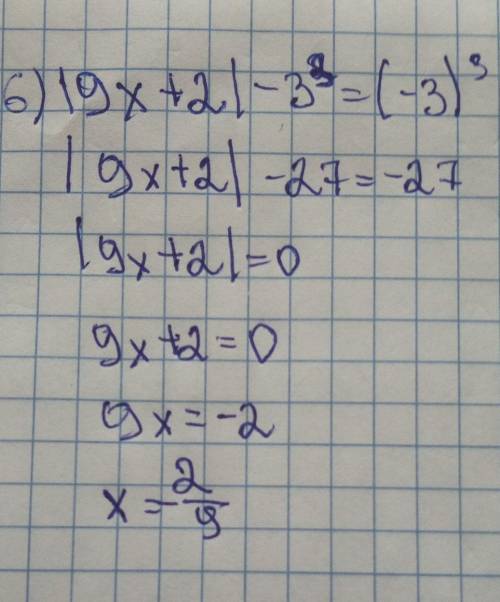 б) |9x+2| - 3³ = (-3)³
|9x+2| - 27 = -27
|9x+2| = 0
9x+2 = 0
9x = -2
x = -2/9